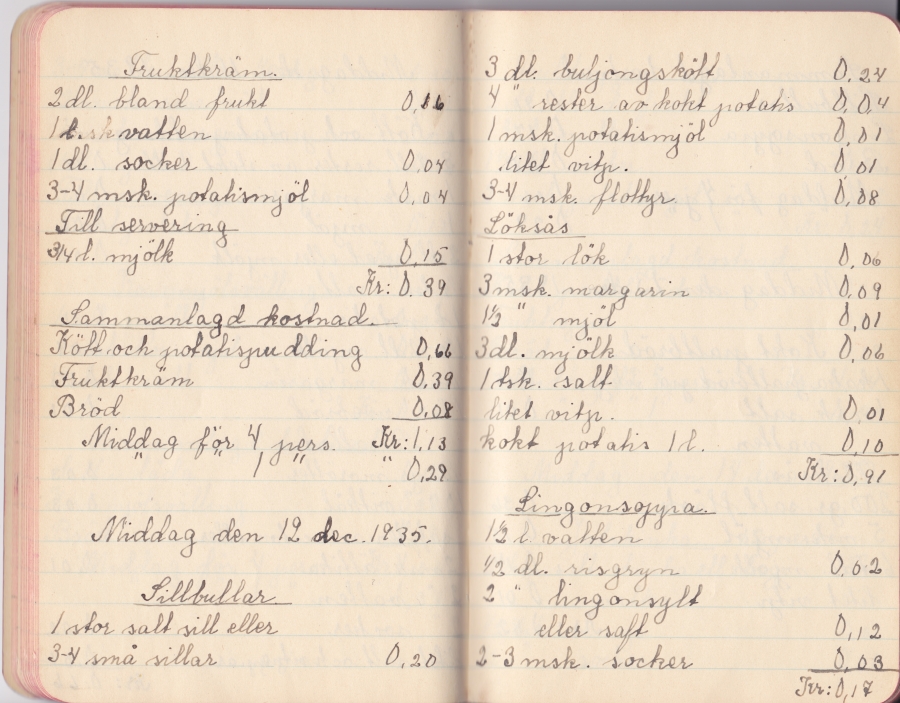 Fruktkräm.
2 dl. bland frukt 0,16
1 l. vatten
1 dl. socker 0,04
3-4 msk. potatismjöl 0,04
Till servering
3/4 l. mjölk 0,15
Kr: 0.39
Sammanlagd kostnad.
Kött och potatispudding 0,66
Fruktkräm 0,39
Bröd 0,08
Middag för 4 pers. Kr: 1,13
" " 1 " " 0,29
Middag den 12 dec. 1935.
Sillbullar
1 stor salt sill eller
3-4 små sillar 0,20
3 dl. buljongskött 0,24
4 " rester av kokt potatis 0,04
1 msk. potatismjöl 0,01
litet vitp. 0,01
3-4 msk. flottyr 0,08
Löksås
1 stor lök 0,06
3 msk. margarin 0,09
1 1/2 " mjöl 0,01
3 dl. mjölk 0,06
1 tsk. salt
litet vitp. 0,01
kokt potatis 1 l. 0,10
Kr: 0,91
Lingonsoppa.
1 1/2 l. vatten
1/2 dl. risgryn 0,02
2 " lingonsylt
eller saft 0,12
2-3 msk. socker 0,03
Kr: 0,17